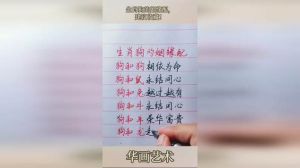 生肖狗的姻缘配
狗和狗相依为命
狗和鼠永结同心
狗和兔越过越有
狗和牛永结同心
狗和羊荣华富贵
狗和龙走
华画艺术